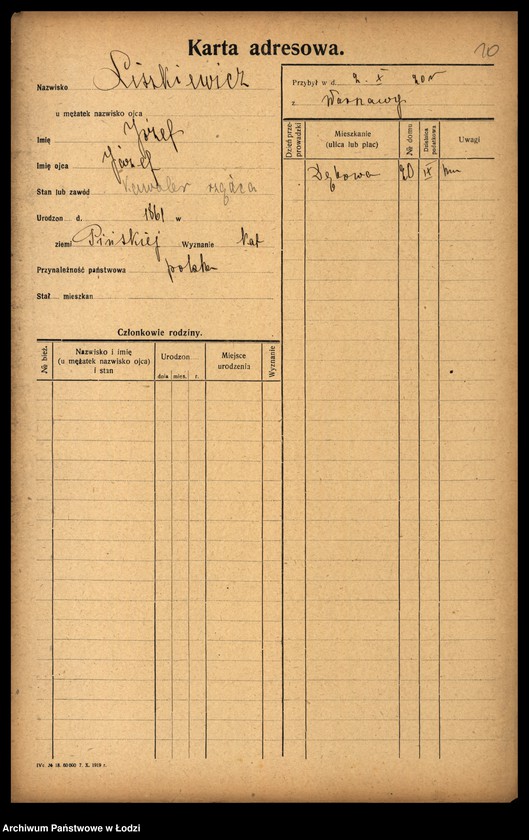 Karta adresowa.
10
Nazwisko Liszkiewicz
u mężatek nazwisko ojca
Imię Józef
Imię ojca Józef
Stan lub zawód Kawaler rządca
Urodzon d. 1861 w
ziemi Pińskiej Wyznanie kat
Przynależność państwowa polska
Stał. mieszkan
Przybył w d. 2. X 20 r
z Warszawy
Dzień przeprowadzki
Mieszkanie
(ulica lub plac)
№ domu
Dzielnica podatkowa
Uwagi
Dębowa 20 IX
Członkowie rodziny.
№ bież.
Nazwisko i imię
(u mężatek nazwisko ojca)
i stan
Urodzon
dnia mies. r.
Miejsce
urodzenia
Wyznanie
IVr. № 18. 60 000 7. X. 1919 r.
Archiwum Państwowe w Łodzi